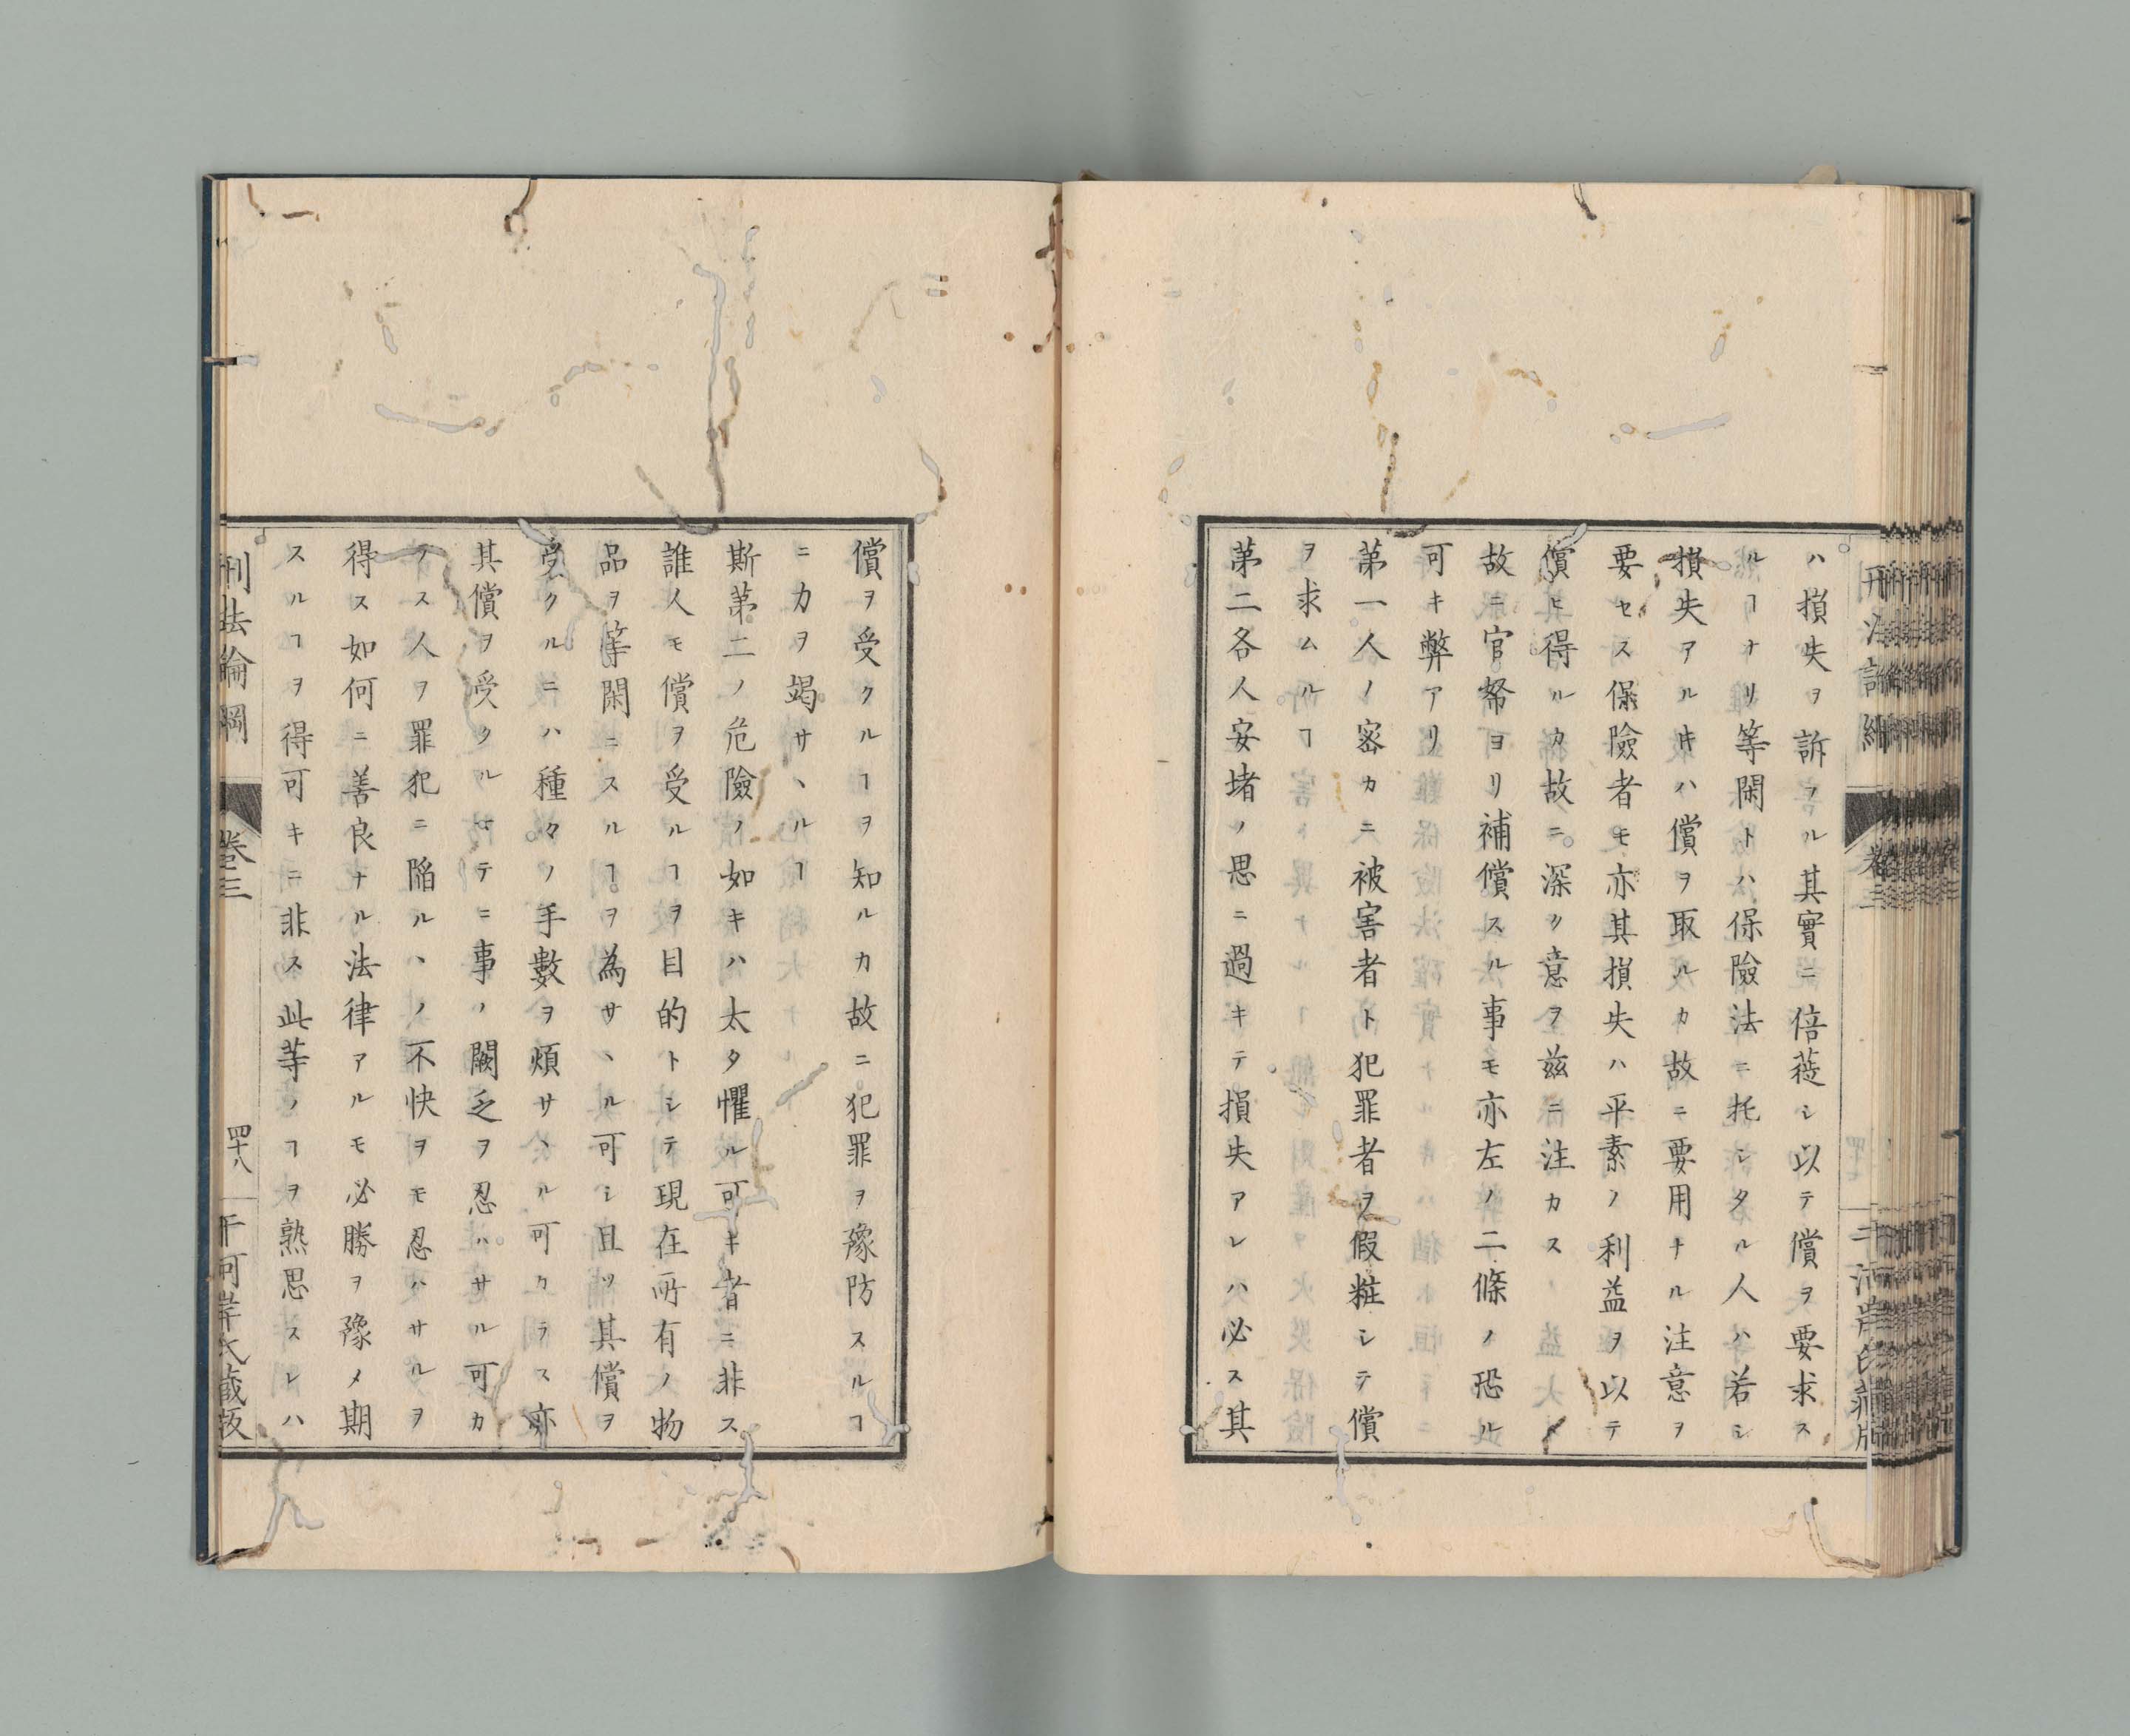 ハ損失ヲ訴フル其實ニ倍蓰シ以テ償ヲ要求ス
ルヿナリ等閑トハ保險法ニ托シタル人ハ若シ
損失アル片ハ償ヲ取ルカ故ニ要用ナル注意ヲ
要セス保險者モ亦其損失ハ平素ノ利益ヲ以テ
償ヒ得ルカ故ニ深ク意ヲ茲ニ注カス
故ニ官帑ヨリ補償スル事モ亦左ノ二條ノ恐ル
可キ弊アリ
第一人ノ密カニ被害者ト犯罪者ヲ假粧シテ償
ヲ求ムルヿ
第二各人安堵ノ思ニ過キテ損失アレハ必ス其
償ヲ受クルヿヲ知ルカ故ニ犯罪ヲ豫防スルヿ
ニカヲ竭サヽルヿ
斯第二ノ危險ノ如キハ太タ懼ル可キ者ニ非ス
誰人モ償ヲ受ルヿヲ目的トシテ現在所有ノ物
品ヲ等閑ニスルヿヲ為サヽル可シ且ツ其償ヲ
受クルニハ種々ノ手數ヲ煩サヽル可ケラス亦
其償ヲ受クルマテニ事ノ闕乏ヲ忍ハサル可カ
ラス人ヲ罪犯ニ陥ルヽノ不快ヲモ忍ハサルヲ
得ス如何ニ善良ナル法律アルモ必勝ヲ豫メ期
スルヿヲ得可キニ非ス此等ノヿヲ熟思スレハ
刑法論綱
卷三
四十八
干河岸氏蔵板